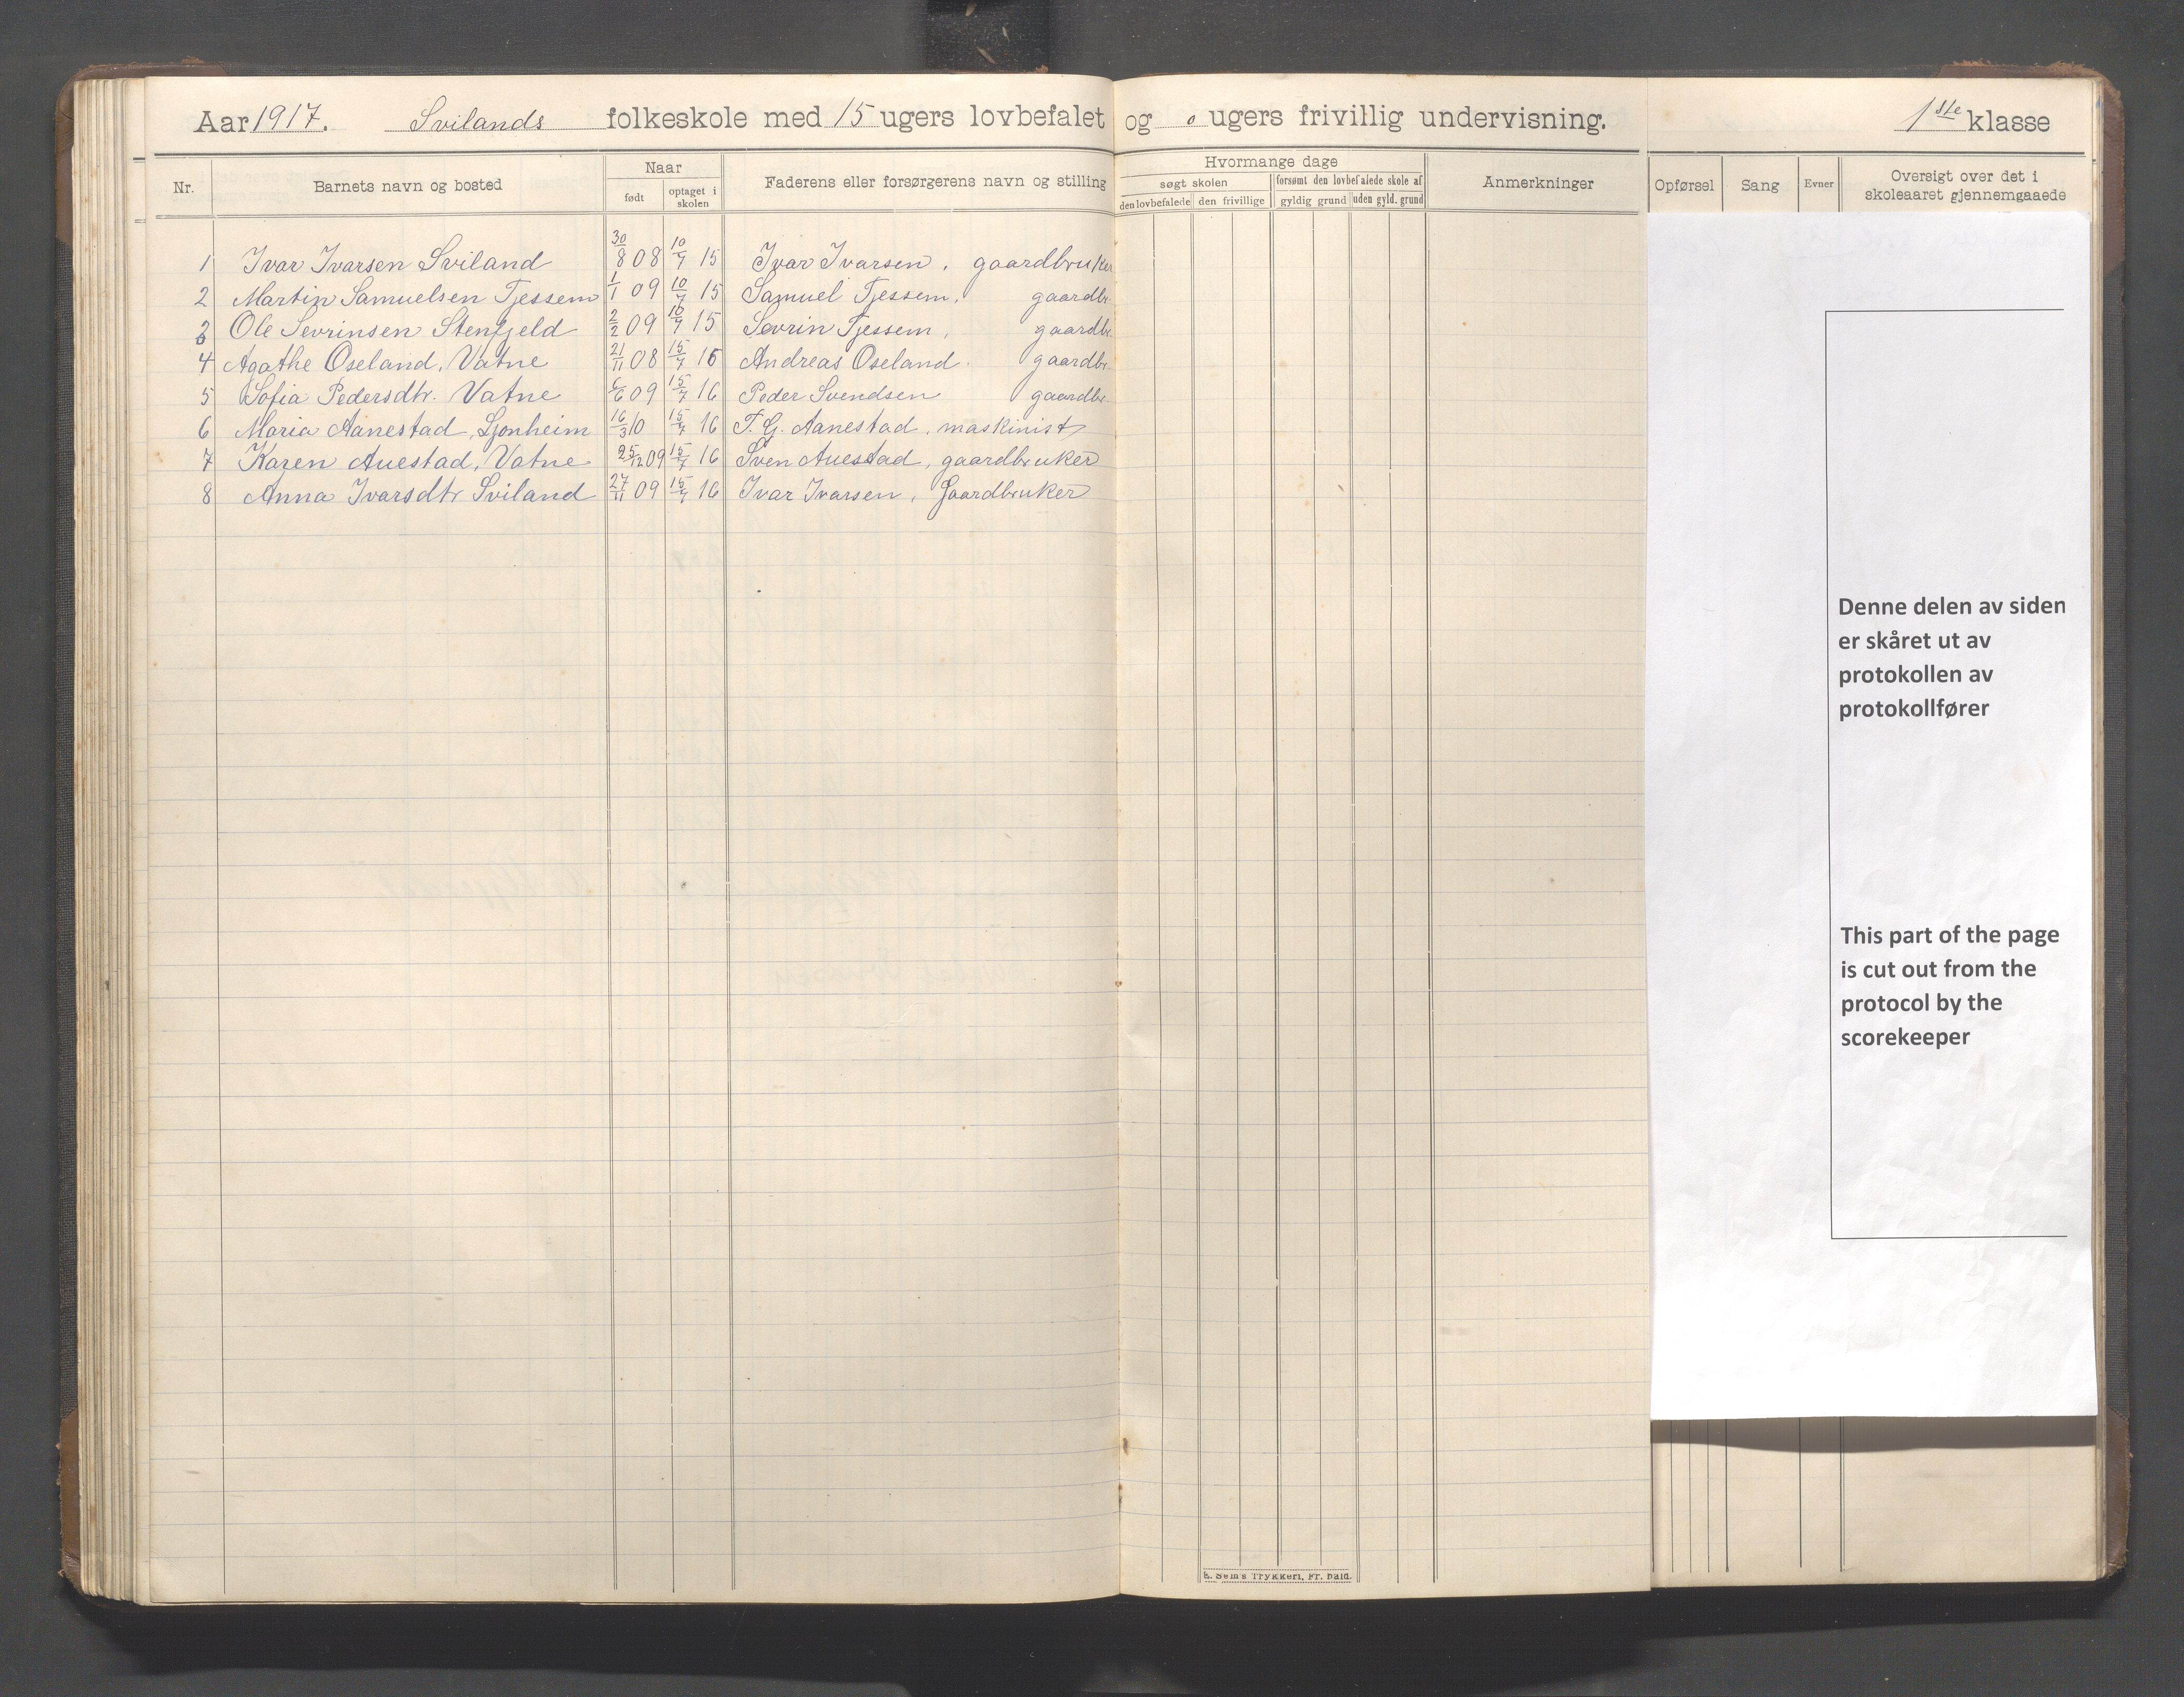 Aar 1917. Svilands folkeskole med 15 ugers lovbefalet og 0 ugers frivillig undervisning. 1ste klasse
Nr. Barnets navn og bosted Naar født optaget i skolen Faderens eller forsørgerens navn og stilling Hvormange dage søgt skolen den lovbefalede den frivillige forsømt den lovbefalede skole af gyldig grund uden gyld. grund Anmerkninger Opførsel Sang Evner Oversigt over det i skoleaaret gjennemgaaede
1 Ivar Ivarsen Sviland 30/8 08 10/7 15 Ivar Ivarsen, gaardbruker
2 Martin Samuelsen Tjessem 1/1 09 10/7 15 Samuel Tjessem, gaardbr.
3 Ole Sevrinsen Stenfjeld 2/2 09 10/7 15 Sevrin Tjessem, gaardbr.
4 Agathe Oseland, Vatne 21/11 08 15/7 16 Andreas Oseland. gaardbr.
5 Sofia Pedersdtr. Vatne 6/6 09 15/7 16 Peder Svendsen gaardbr.
6 Maria Aanestad, Ljonheim 16/3 10 15/7 16 T. G. Aanestad, maskinist
7 Karen Auestad, Vatne 25/12 09 15/7 16 Sven Auestad, gaardbruker
8 Anna Ivarsdtr Sviland 27/11 09 15/7 16 Ivar Ivarsen, Gaardbruker
Denne delen av siden
er skåret ut av
protokollen av
protokollfører
This part of the page
is cut out from the
protocol by the
scorekeeper
E. Sem's Trykkeri, Fr. hald.